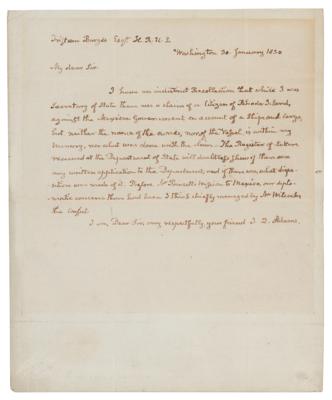 Tristam Burges Esqr H. R. U. S.
Washington 30. January 1830
My dear Sir.
I have an indistinct Recollection that while I was
Secretary of State there was a claim of a Citizen of Rhode Island,
against the Mexican Government on account of a Ship and Cargo,
but neither the name of the owner, nor of the Vessel is within my
Memory, nor what was done with the claim. The Register of Letters
received at the Department of State will doubtless shew if there was
any written application to the Department, and if there was, what dispo-
sition was made of it. Before Mr Poinsett's Mission to Mexico, our diplo-
matic concerns there had been I think chiefly managed by Mr Wilcocks
the Consul.
I am, Dear Sir, very respectfully, your friend J. Q. Adams.